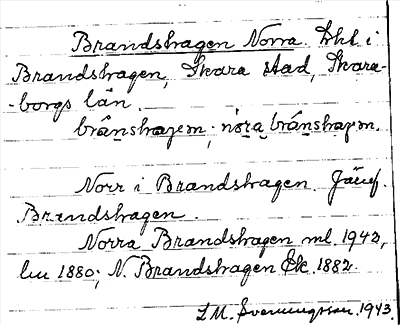 Brandshagen Norra. Lht i
Brandshagen, Skara stad, Skara-
-borgs län.
brånshagem; nɷra brånshagm.
Norr i Brandshagen. Jämf.
Brandshagen.
Norra Brandshagen ml. 1942,
lm 1880; N. Brandshagen Ek 1882.
L M. Svenningsson. 1943.